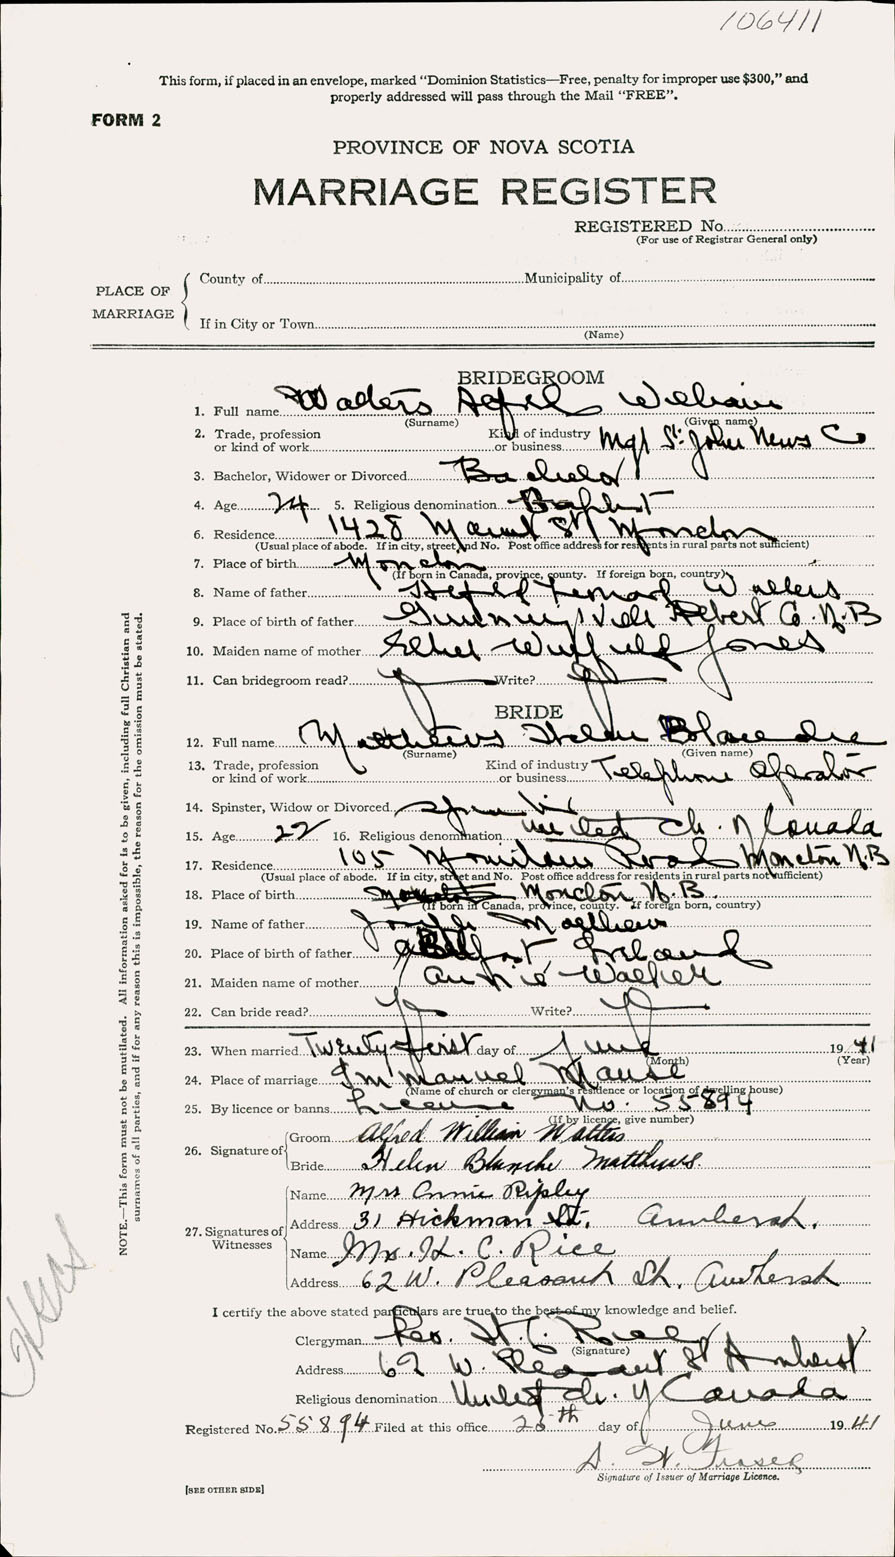 106411
This form, if placed in an envelope, marked “Dominion Statistics—Free, penalty for improper use $300,” and
properly addressed will pass through the Mail “FREE”.
FORM 2
PROVINCE OF NOVA SCOTIA
MARRIAGE REGISTER
REGISTERED No.
(For use of Registrar General only)
PLACE OF MARRIAGE
County of Municipality of
If in City or Town
(Name)
BRIDEGROOM
1. Full name Walters Alfred William
(Surname) (Given name)
2. Trade, profession or kind of work Kind of industry or business Mgr St. John News Co
3. Bachelor, Widower or Divorced Bachelor
4. Age 24 5. Religious denomination Baptist
6. Residence 1428 St Moncton
(Usual place of abode. If in city, street and No. Post office address for residents in rural parts not sufficient)
7. Place of birth Moncton
(If born in Canada, province, county. If foreign born, country)
8. Name of father Leonard Walters
9. Place of birth of father Albert Co. N.B
10. Maiden name of mother Ethel Winfield Jones
11. Can bridegroom read? Write?
BRIDE
12. Full name Matthews Helen Blanche
(Surname) (Given name)
13. Trade, profession or kind of work Kind of industry or business Telephone Operator
14. Spinster, Widow or Divorced Spinster
15. Age 22 16. Religious denomination United Ch. of Canada
17. Residence 105 Mountain Road Moncton N.B
(Usual place of abode. If in city, street and No. Post office address for residents in rural parts not sufficient)
18. Place of birth Moncton N.B.
(If born in Canada, province, county. If foreign born, country)
19. Name of father Joseph Matthews
20. Place of birth of father Belfast, Ireland
21. Maiden name of mother Annie Walker
22. Can bride read? Write?
23. When married Twenty first day of June 1941
(Month) (Year)
24. Place of marriage Immanuel Manse
(Name of church or clergyman’s residence or location of dwelling house)
25. By licence or banns License No. 55894
(If by licence, give number)
26. Signature of
Groom Alfred William Walters
Bride Helen Blanche Matthews.
27. Signatures of Witnesses
Name Mrs Annie Ripley
Address 31 Hickman St. Amherst.
Name Mrs. H. C. Rice
Address 62 W. Pleasant St. Amherst
I certify the above stated particulars are true to the best of my knowledge and belief.
Clergyman Rev. H. C. Rice
(Signature)
Address 62 W. Pleasant St Amherst
Religious denomination United Ch. of Canada
Registered No. 55894 Filed at this office day of June 1941
Fraser
Signature of Issuer of Marriage Licence.
[SEE OTHER SIDE]
NOTE.—This form must not be mutilated. All information asked for is to be given, including full Christian and
surnames of all parties, and if for any reason this is impossible, the reason for the omission must be stated.